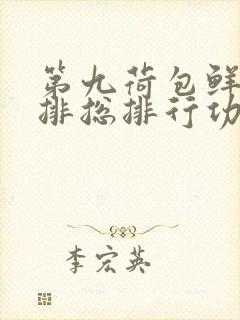 第九荷包鲜
排总排行功
李宏英